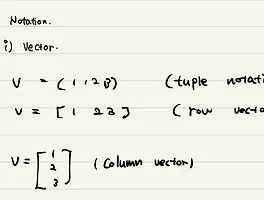 Notation.
i) Vector.
V = (1, 2 3) (tuple notati
V = [1 2 3] (row vecto
V = [1 2 3] (Column vector)